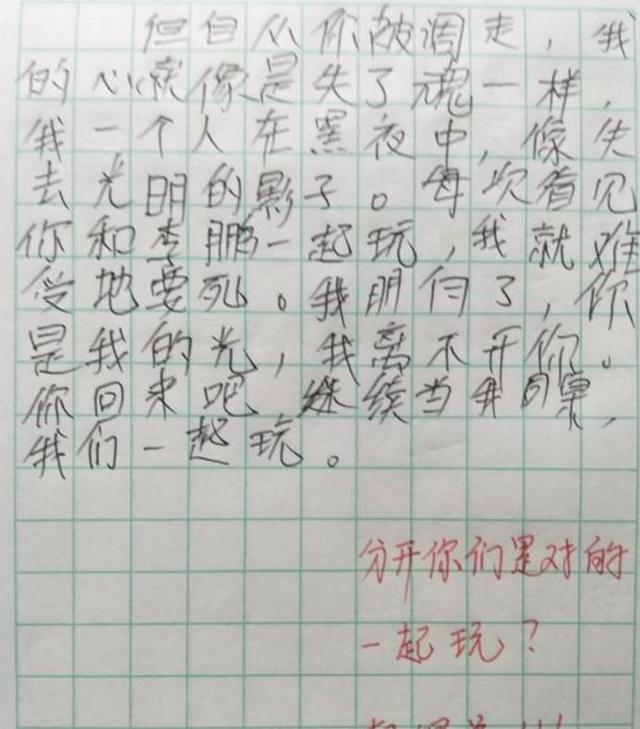 但自从你被调走，我
的心就像是失了魂一样，
我一个人在黑夜中，像失
去光明的影子。每次看见
你和李鹏一起玩，我就难
受地要死。我明白了，你
是我的光，我离不开你。
你回来吧，继续当我同桌，
我们一起玩。
分开你们是对的
一起玩？